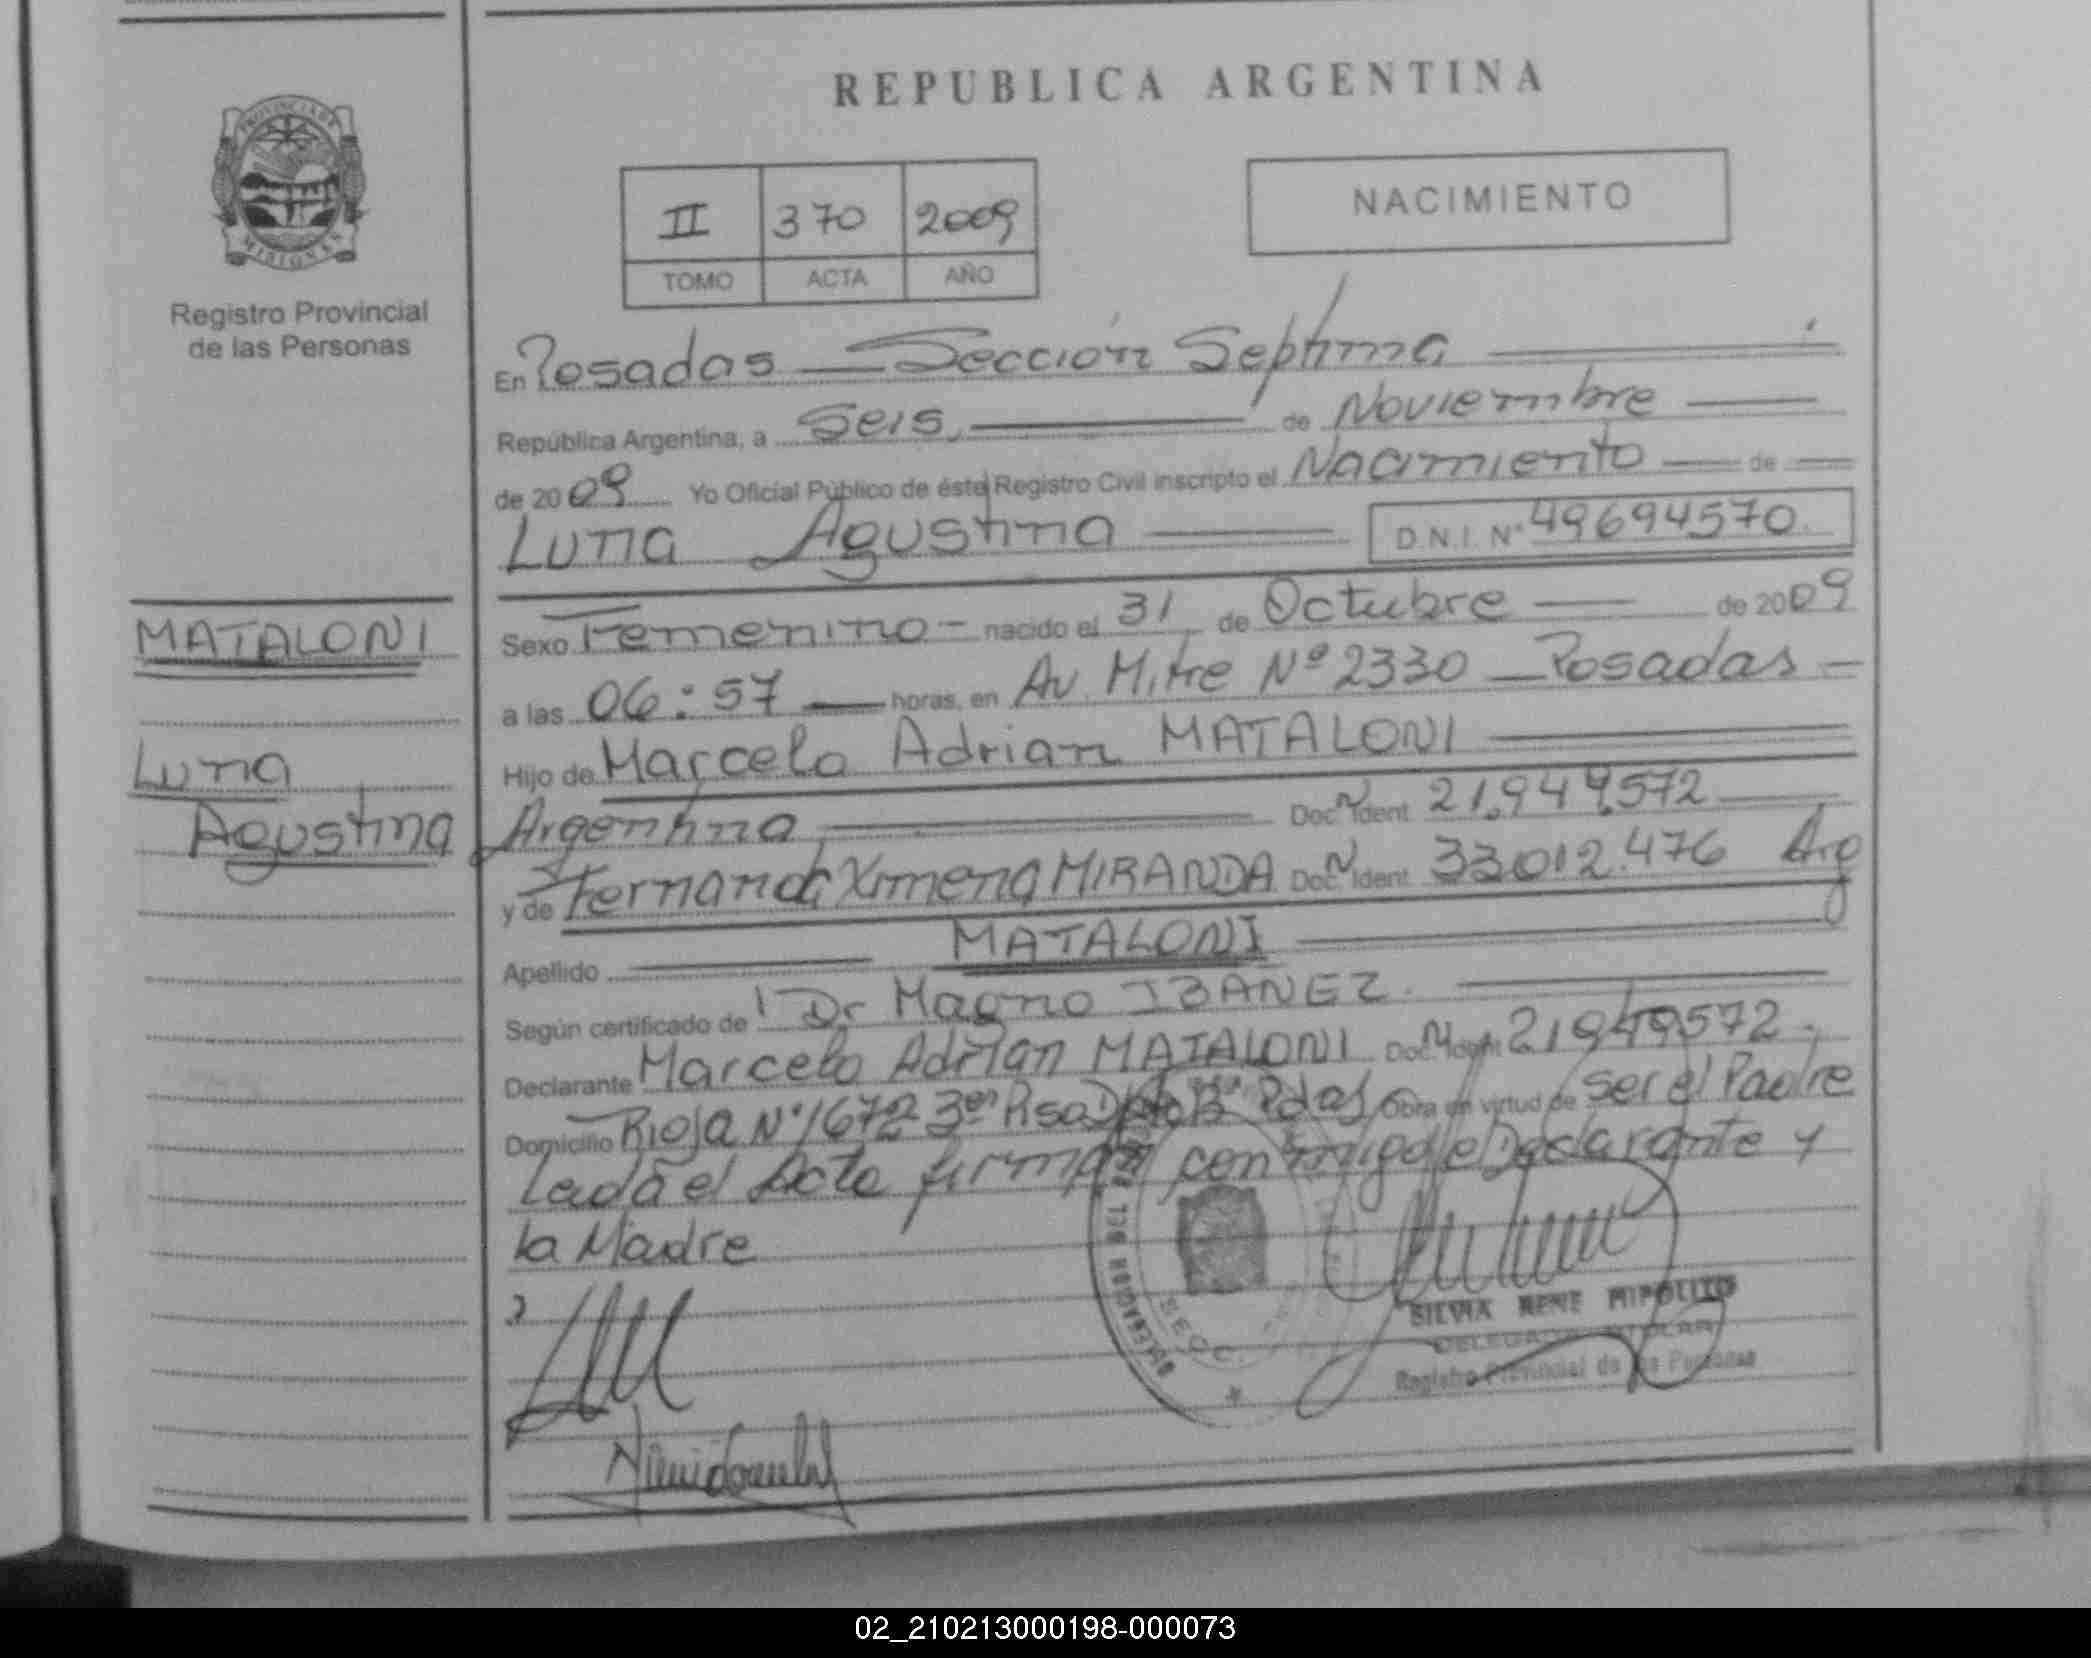 REPUBLICA ARGENTINA
PROVINCIA DE
MISIONES
Registro Provincial
de las Personas
II 370 2009
TOMO ACTA AÑO
NACIMIENTO
En Posadas — Sección Septima
República Argentina, a Seis de Noviembre
de 2009 Yo Oficial Público de éste Registro Civil inscripto el Nacimiento de
Luna Agustina D.N.I. Nº 49694570
MATALONI
Luna
Agustina
Sexo Femenino - nacido el 31 de Octubre de 2009
a las 06:57 horas, en Av Mitre Nº 2330 — Posadas —
Hijo de Marcelo Adrian MATALONI
Argentina Doc. N Ident 21.949.572
y de Fernanda Ximena MIRANDA Doc. N Ident 33.012.476 Arg
Apellido MATALONI
Según certificado de Dr Magno IBAÑEZ.
Declarante Marcelo Adrian MATALONI Doc. N Ident 21949572
Domicilio Rioja Nº 1672 3er Piso Dpto B Pdas Obra en virtud de Ser el Padre
Leida el Acta firman conmigo el Declarante y
la Madre
SECC.
SILVIA RENE HIPOLITO
DELEGADA TITULAR
Registro Provincial de las Personas
02_210213000198-000073